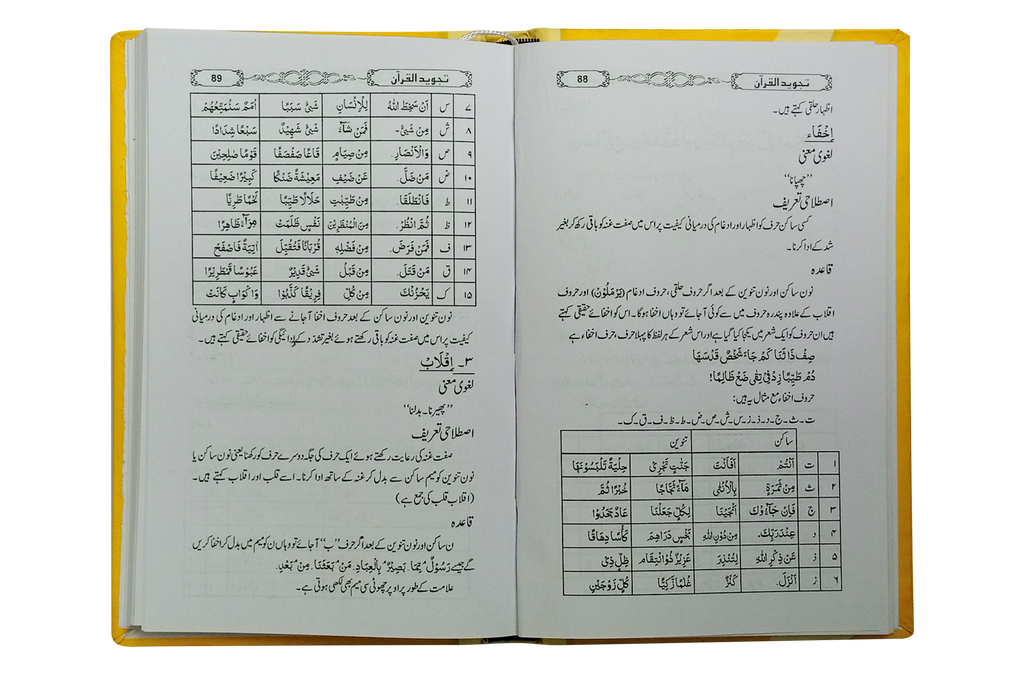 88 تجوید القرآن
اظہار حلقی کہتے ہیں۔
اِخْفَاء
لغوی معنی
”چھپانا“
اصطلاحی تعریف
کسی ساکن حرف کو اظہار اور ادغام کی درمیانی کیفیت پر اس میں صفت غنہ کو باقی رکھ کر بغیر
شد کے ادا کرنا۔
قاعدہ
نون ساکن اور نون تنوین کے بعد اگر حروف حلقی، حروف ادغام (یَرْمَلُوْنَ) اور حروف
اقلاب کے علاوہ پندرہ حروف میں سے کوئی آجائے تو وہاں اخفا ہوگا۔ اس کو اخفائے حقیقی کہتے
ہیں ان حروف کو ایک شعر میں یکجا کیا گیا ہے اور اس شعر کے ہر لفظ کا پہلا حرف، حرف اخفاء ہے
صِفْ ذَا ثَنَا كَمْ جَاءَ شَخْصٌ قَدْسَمَا
دُمْ طَيِّبًا زِدْ فِيْ تُقًى ضَعْ ظَالِمًا!
حروف اخفاء مع مثال یہ ہیں:
ت۔ث۔ج۔د۔ذ۔ز۔س۔ش۔ص۔ض۔ط۔ظ۔ف۔ق۔ک۔
ساکن تنوین
۱ ت اَنْتُمْ اَفَاَنْتَ جَنّٰتٍ تَجْرِیْ حِلْیَةً تَلْبَسُوْنَهَا
۲ ث مِنْ ثَمَرَةٍ بِالْاُنْثٰی مَآءً ثَجَّاجًا خُبْرًا ثُمَّ
۳ ج فَاِنْ جَآءُوْكَ اَنْجَیْنَا لِكُلٍّ جَعَلْنَا عَادٌ جَحَدُوْا
۴ د عِنْدَ رَبِّكَ۔ مِنْ دُوْنِ اللهِ بَخْسٍ دَرَاهِمَ كَأْسًا دِهَاقًا
۵ ذ عَنْ ذِكْرِ اللهِ لِتُنْذِرَ عَزِیْزٌ ذُوانْتِقَامٍ ظِلٍّ ذِیْ
۶ ز اَنْزَلَ۔ كَنْزٌ غُلٰمًا زَكِیًّا كُلٍّ زَوْجَیْنِ
89 تجوید القرآن
۷ س اَنْ سَخِطَ اللهُ لِلْاِنْسَانِ شَیْءٍ سَبَبًا اُمَمٌ سَنُمَتِّعُهُمْ
۸ ش مِنْ شَیْءٍ۔ فَمَنْ شَآءَ شَیْءٍ شَهِیْدٌ سَبْعًا شِدَادًا
۹ ص وَالْاَنْصَارِ۔ مِنْ صِیَامٍ قَاعًا صَفْصَفًا قَوْمًا صٰلِحِیْنَ
۱۰ ض مَنْ ضَلَّ۔ عَنْ ضَیْفِ مَعِیْشَةً ضَنْكًا كَبِیْرًا ضَعِیْفًا
۱۱ ط فَانْطَلَقَا مِنْ طَیِّبٰتِ حَلَالًا طَیِّبًا لَحْمًا طَرِیًّا
۱۲ ظ ثُمَّ انْظُرْ۔ مِنَ الْمُنْظَرِیْنَ نَفْسٍ ظَلَمَتْ مِرَآءً ظَاهِرًا
۱۳ ف فَمَنْ فَرَضَ۔ مِنْ فَضْلِهٖ قُرْبَانًا فَتُقُبِّلَ اٰتِیَةٌ فَاصْفَحِ
۱۴ ق مَنْ قَتَلَ۔ مِنْ قَبْلُ شَیْءٍ قَدِیْرٌ عَبُوْسًا قَمْطَرِیْرًا
۱۵ ک یَحْزُنْكَ مِنْ كُلِّ فَرِیْقًا كَذَّبُوْا وَاَكْوَابٍ كَانَتْ
نون تنوین اور نون ساکن کے بعد حروف اخفا آجانے سے اظہار اور ادغام کی درمیانی
کیفیت پر اس میں صفت غنہ کو باقی رکھتے ہوئے بغیر تشدد کے ادائیگی کو اخفائے حقیقی کہتے ہیں۔
۳۔ اِقْلَابْ
لغوی معنی
”پھیرنا۔ بدلنا“
اصطلاحی تعریف
صفت غنہ کی رعایت رکھتے ہوئے ایک حرف کی جگہ دوسرے حرف کو رکھنا یعنی نون ساکن یا
نون تنوین کو میم ساکن سے بدل کر غنہ کے ساتھ ادا کرنا۔ اسے قلب اور اقلاب کہتے ہیں۔
(اقلاب قلب کی جمع ہے)
قاعدہ
ن ساکن اور نون تنوین کے بعد اگر حرف ”ب“ آجائے تو وہاں ن کو میم میں بدل کر اخفا کریں
گے جیسے رَسُوْلٌ مِمَّا۔ بَصِیْرٌ بِالْعِبَادِ۔ مَنْ بَعَثَنَا۔ مِنْ بَعْدِ۔
علامت کے طور پر اوپر چھوٹی سی میم بھی لکھی ہوتی ہے۔